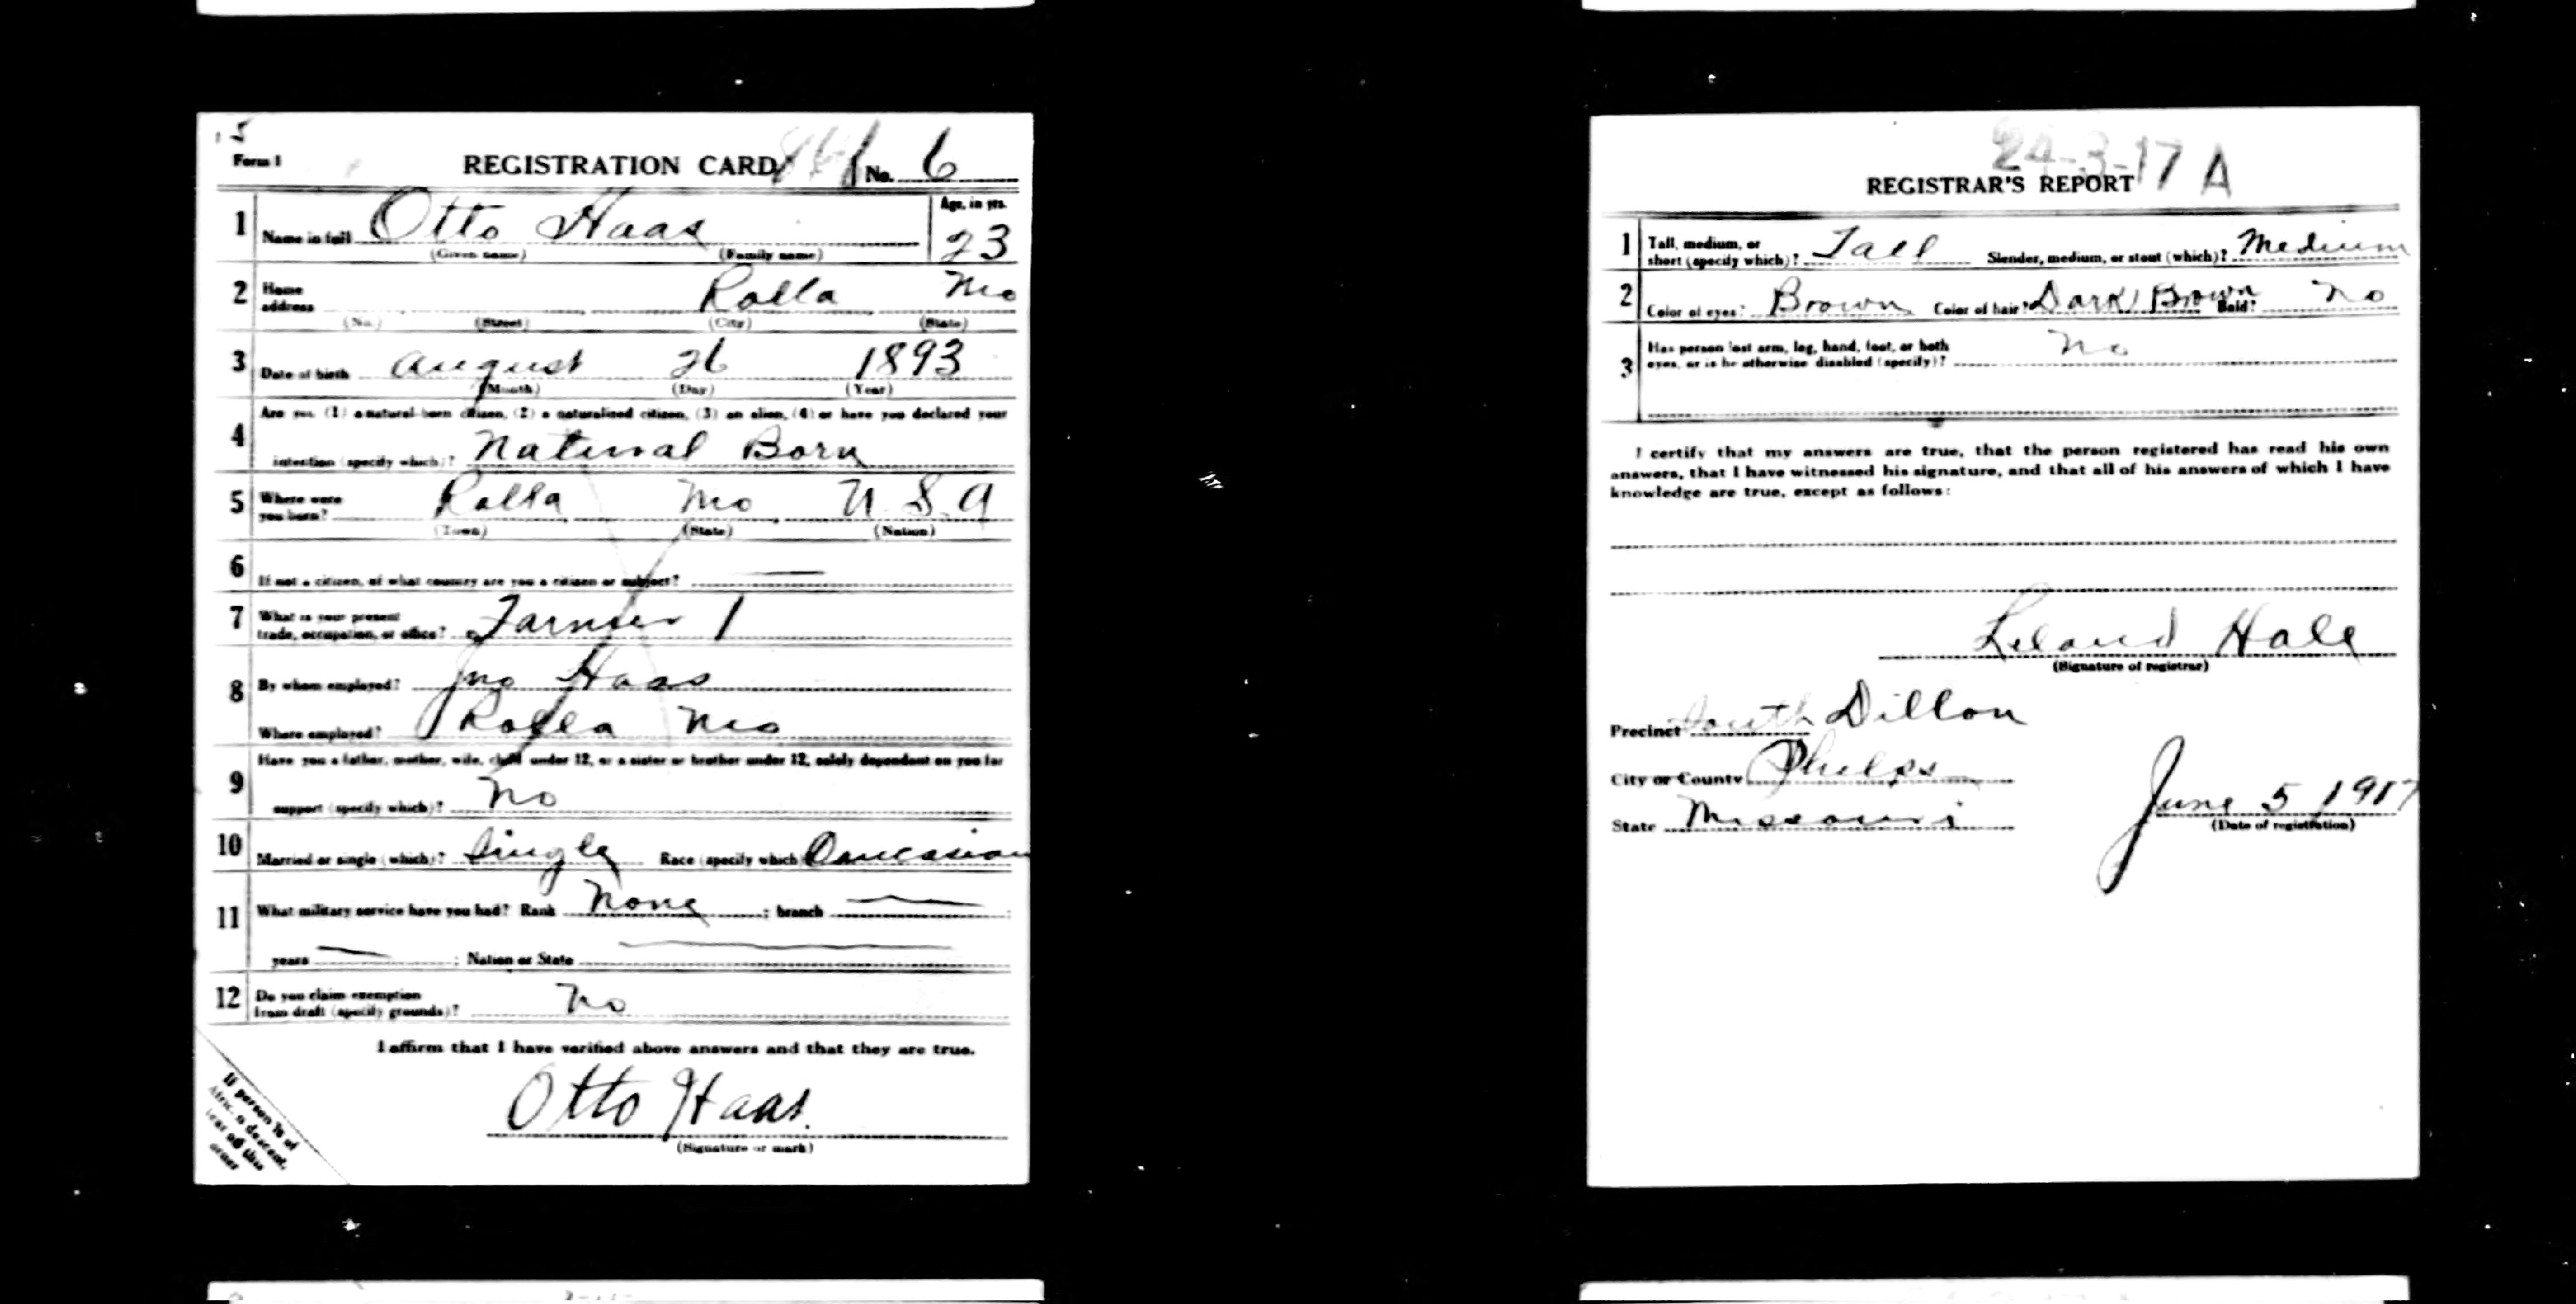 15
Form 1
REGISTRATION CARD No. 6
1 Name in full Otto Haas Age, in yrs. 23
(Given name) (Family name)
2 Home address Rolla Mo
(No.) (Street) (City) (State)
3 Date of birth August 26 1893
(Month) (Day) (Year)
Are you (1) a natural-born citizen, (2) a naturalized citizen, (3) an alien, (4) or have you declared your
4 intention (specify which)? Natural Born
5 Where were you born? Rolla Mo U.S.A
(Town) (State) (Nation)
6 If not a citizen, of what country are you a citizen or subject? —
7 What is your present trade, occupation, or office? Farmer 1
8 By whom employed? Jno Haas
Where employed? Rolla Mo
Have you a father, mother, wife, child under 12, or a sister or brother under 12, solely dependent on you for
9 support (specify which)? No
10 Married or single (which)? Single Race (specify which) Caucasian
11 What military service have you had? Rank None ; branch — ;
years — ; Nation or State —
12 Do you claim exemption from draft (specify grounds)? No
I affirm that I have verified above answers and that they are true.
Otto Haas.
(Signature or mark)
If person is of
African descent,
tear off this
corner
24-3-17 A
REGISTRAR'S REPORT
1 Tall, medium, or short (specify which)? Tall Slender, medium, or stout (which)? Medium
2 Color of eyes? Brown Color of hair? Dark Brown Bald? No
3 Has person lost arm, leg, hand, foot, or both eyes, or is he otherwise disabled (specify)? No
I certify that my answers are true, that the person registered has read his own
answers, that I have witnessed his signature, and that all of his answers of which I have
knowledge are true, except as follows:
Leland Hale
(Signature of registrar)
Precinct South Dillon
City or County Phelps
State Missouri
June 5 1917
(Date of registration)